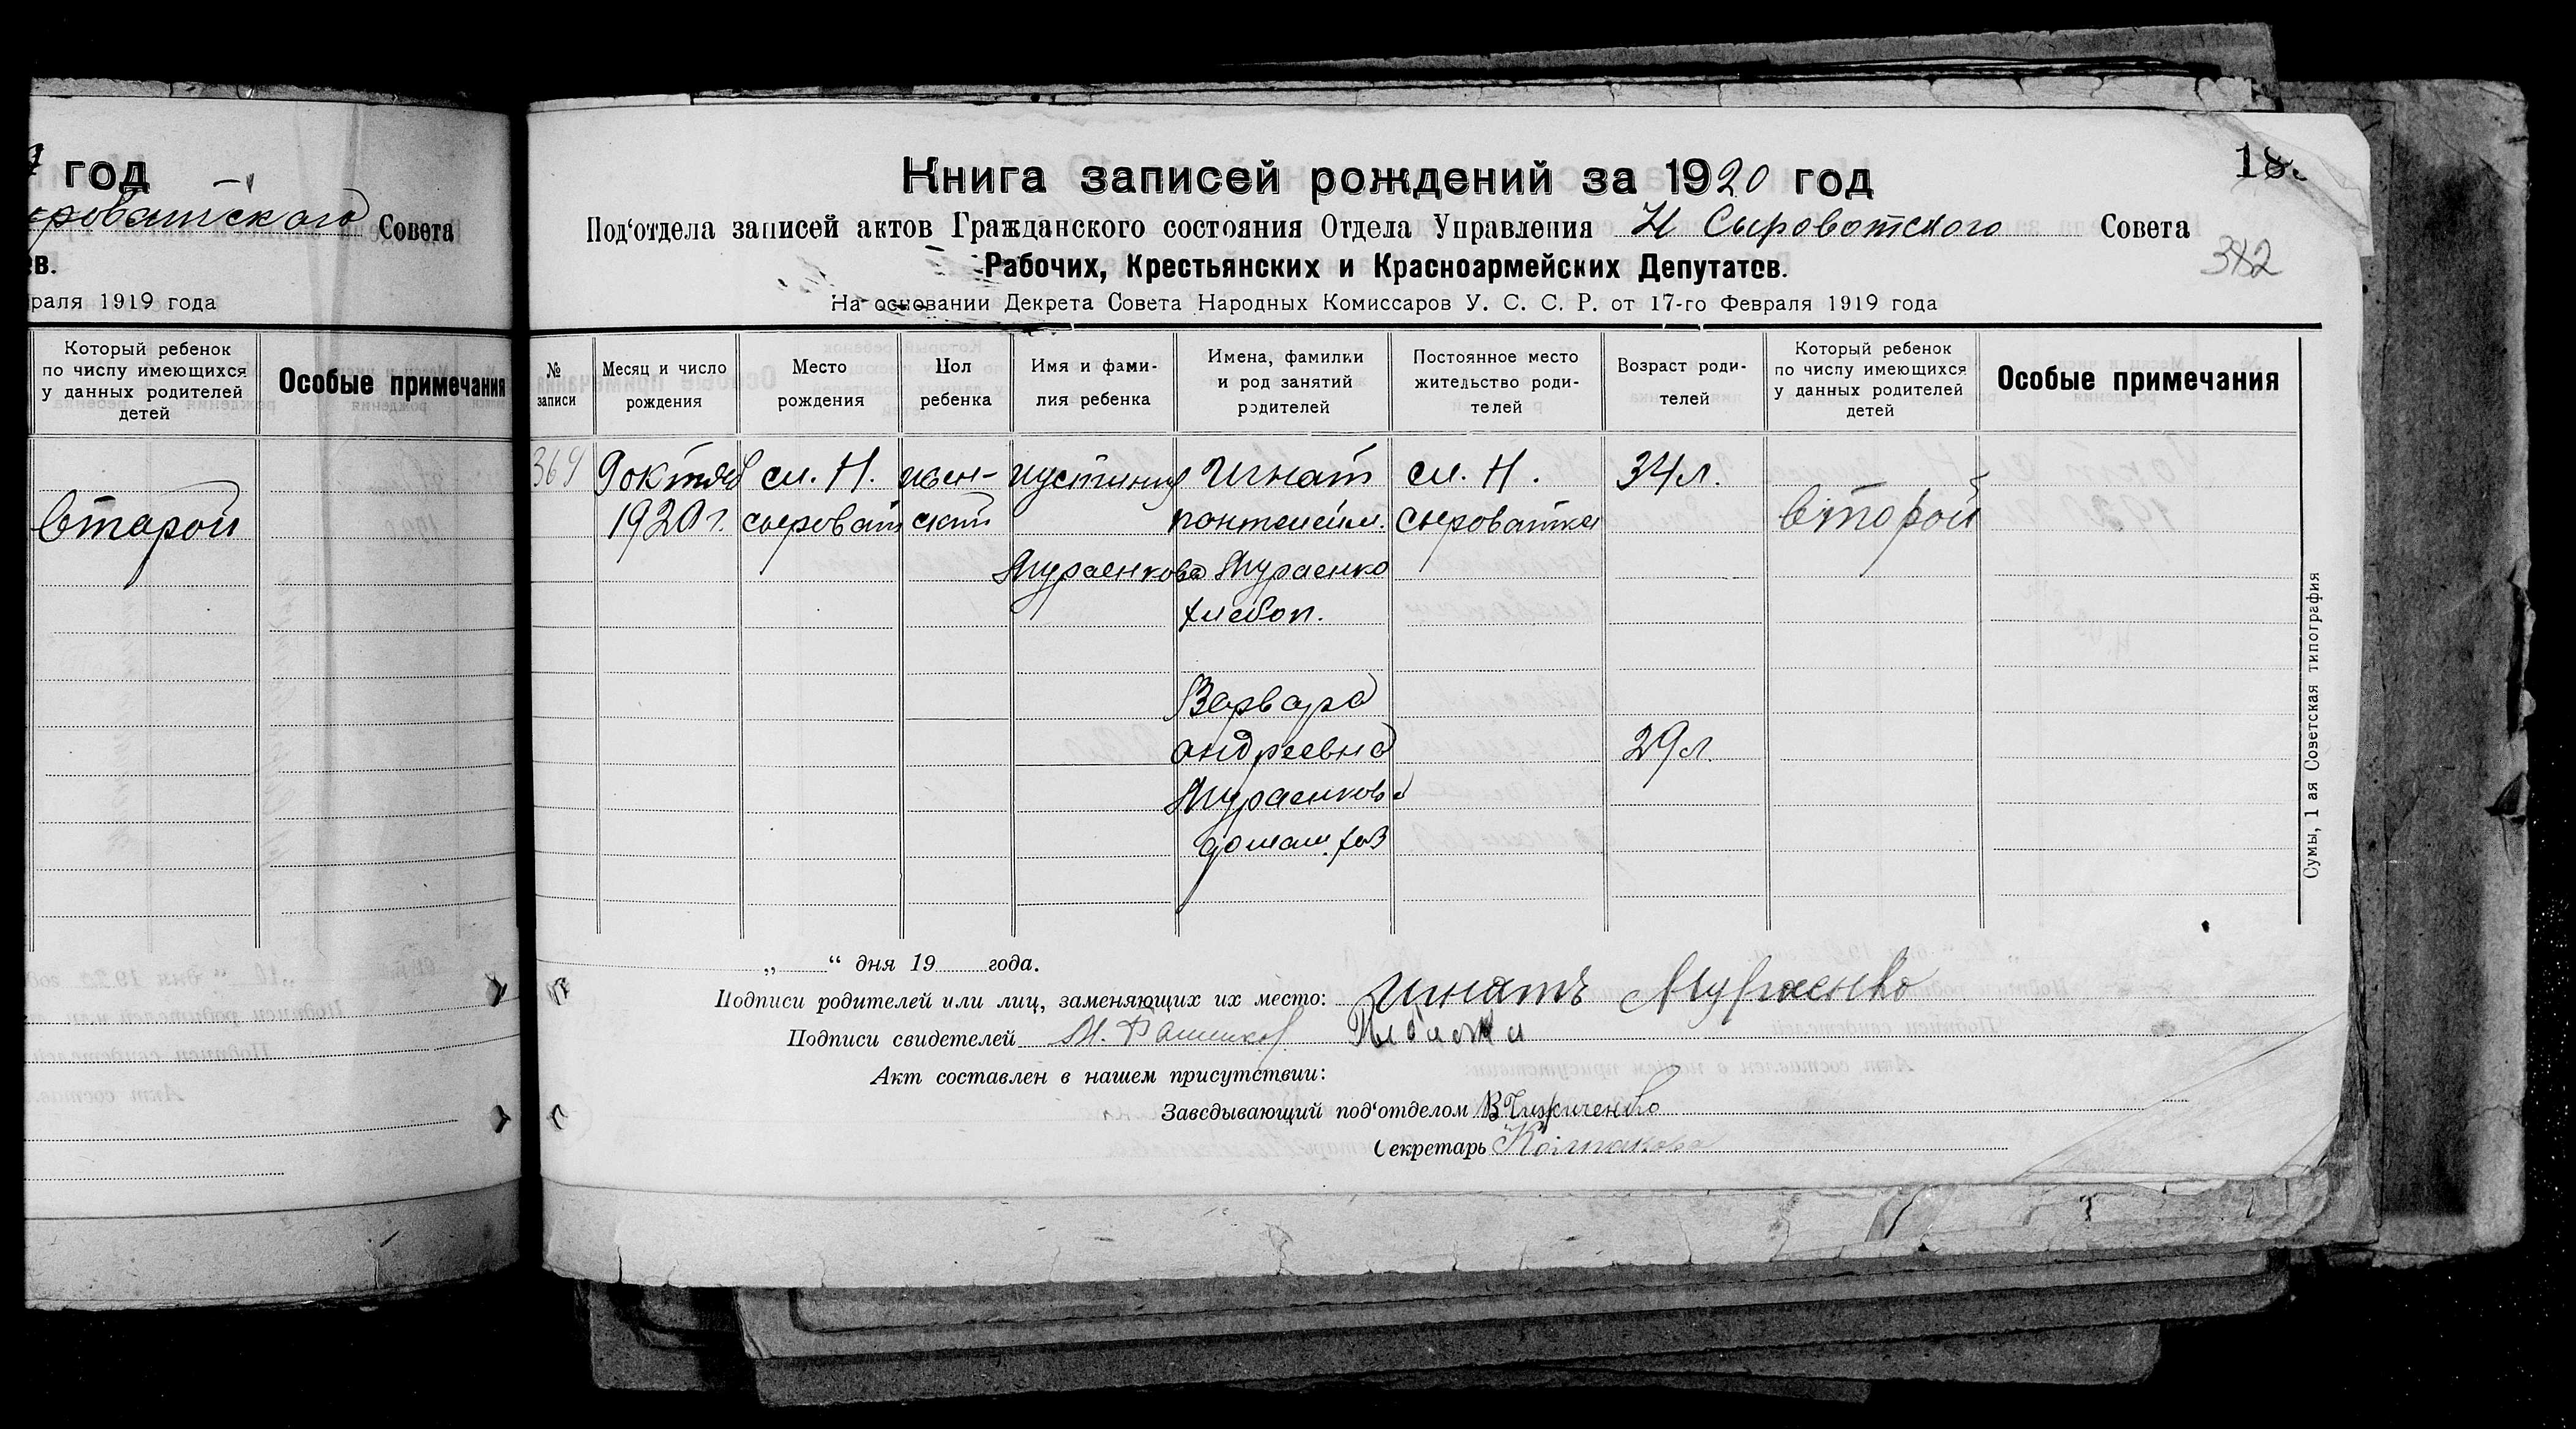 год
Сыроватского Совета
ев.
враля 1919 года
Который ребенок
по числу имеющихся
у данных родителей
детей
Особые примечания
второй
Книга записей рождений за 1920 год
Под‘отдела записей актов Гражданского состояния Отдела Управления Н Сыроватского Совета
382
Рабочих, Крестьянских и Красноармейских Депутатов.
На основании Декрета Совета Народных Комиссаров У. С. С. Р. от 17-го Февраля 1919 года
№ записи
Месяц и число рождения
Место рождения
Пол ребенка
Имя и фами- лия ребенка
Имена, фамилии и род занятий родителей
Постоянное место жительство роди- телей
Возраст роди- телей
Который ребенок по числу имеющихся у данных родителей детей
Особые примечания
369 9 октяб сл. Н. жен- иустиния Игнат сл. Н. 34 л.
1920 г. сыроват ский пантелейм. сыроватка второй
Мураенкова Мураенко
хлебоп.
Варвара
андреевна 29 л.
Мураенкова
домаш. хоз
Сумы, 1 ая Советская типография
„ “ дня 19 года.
Подписи родителей или лиц, заменяющих их место: Игнатъ Мураенко
Подписи свидетелей М.
Акт составлен в нашем присутствии:
Заведывающий под‘отделом В
Секретарь